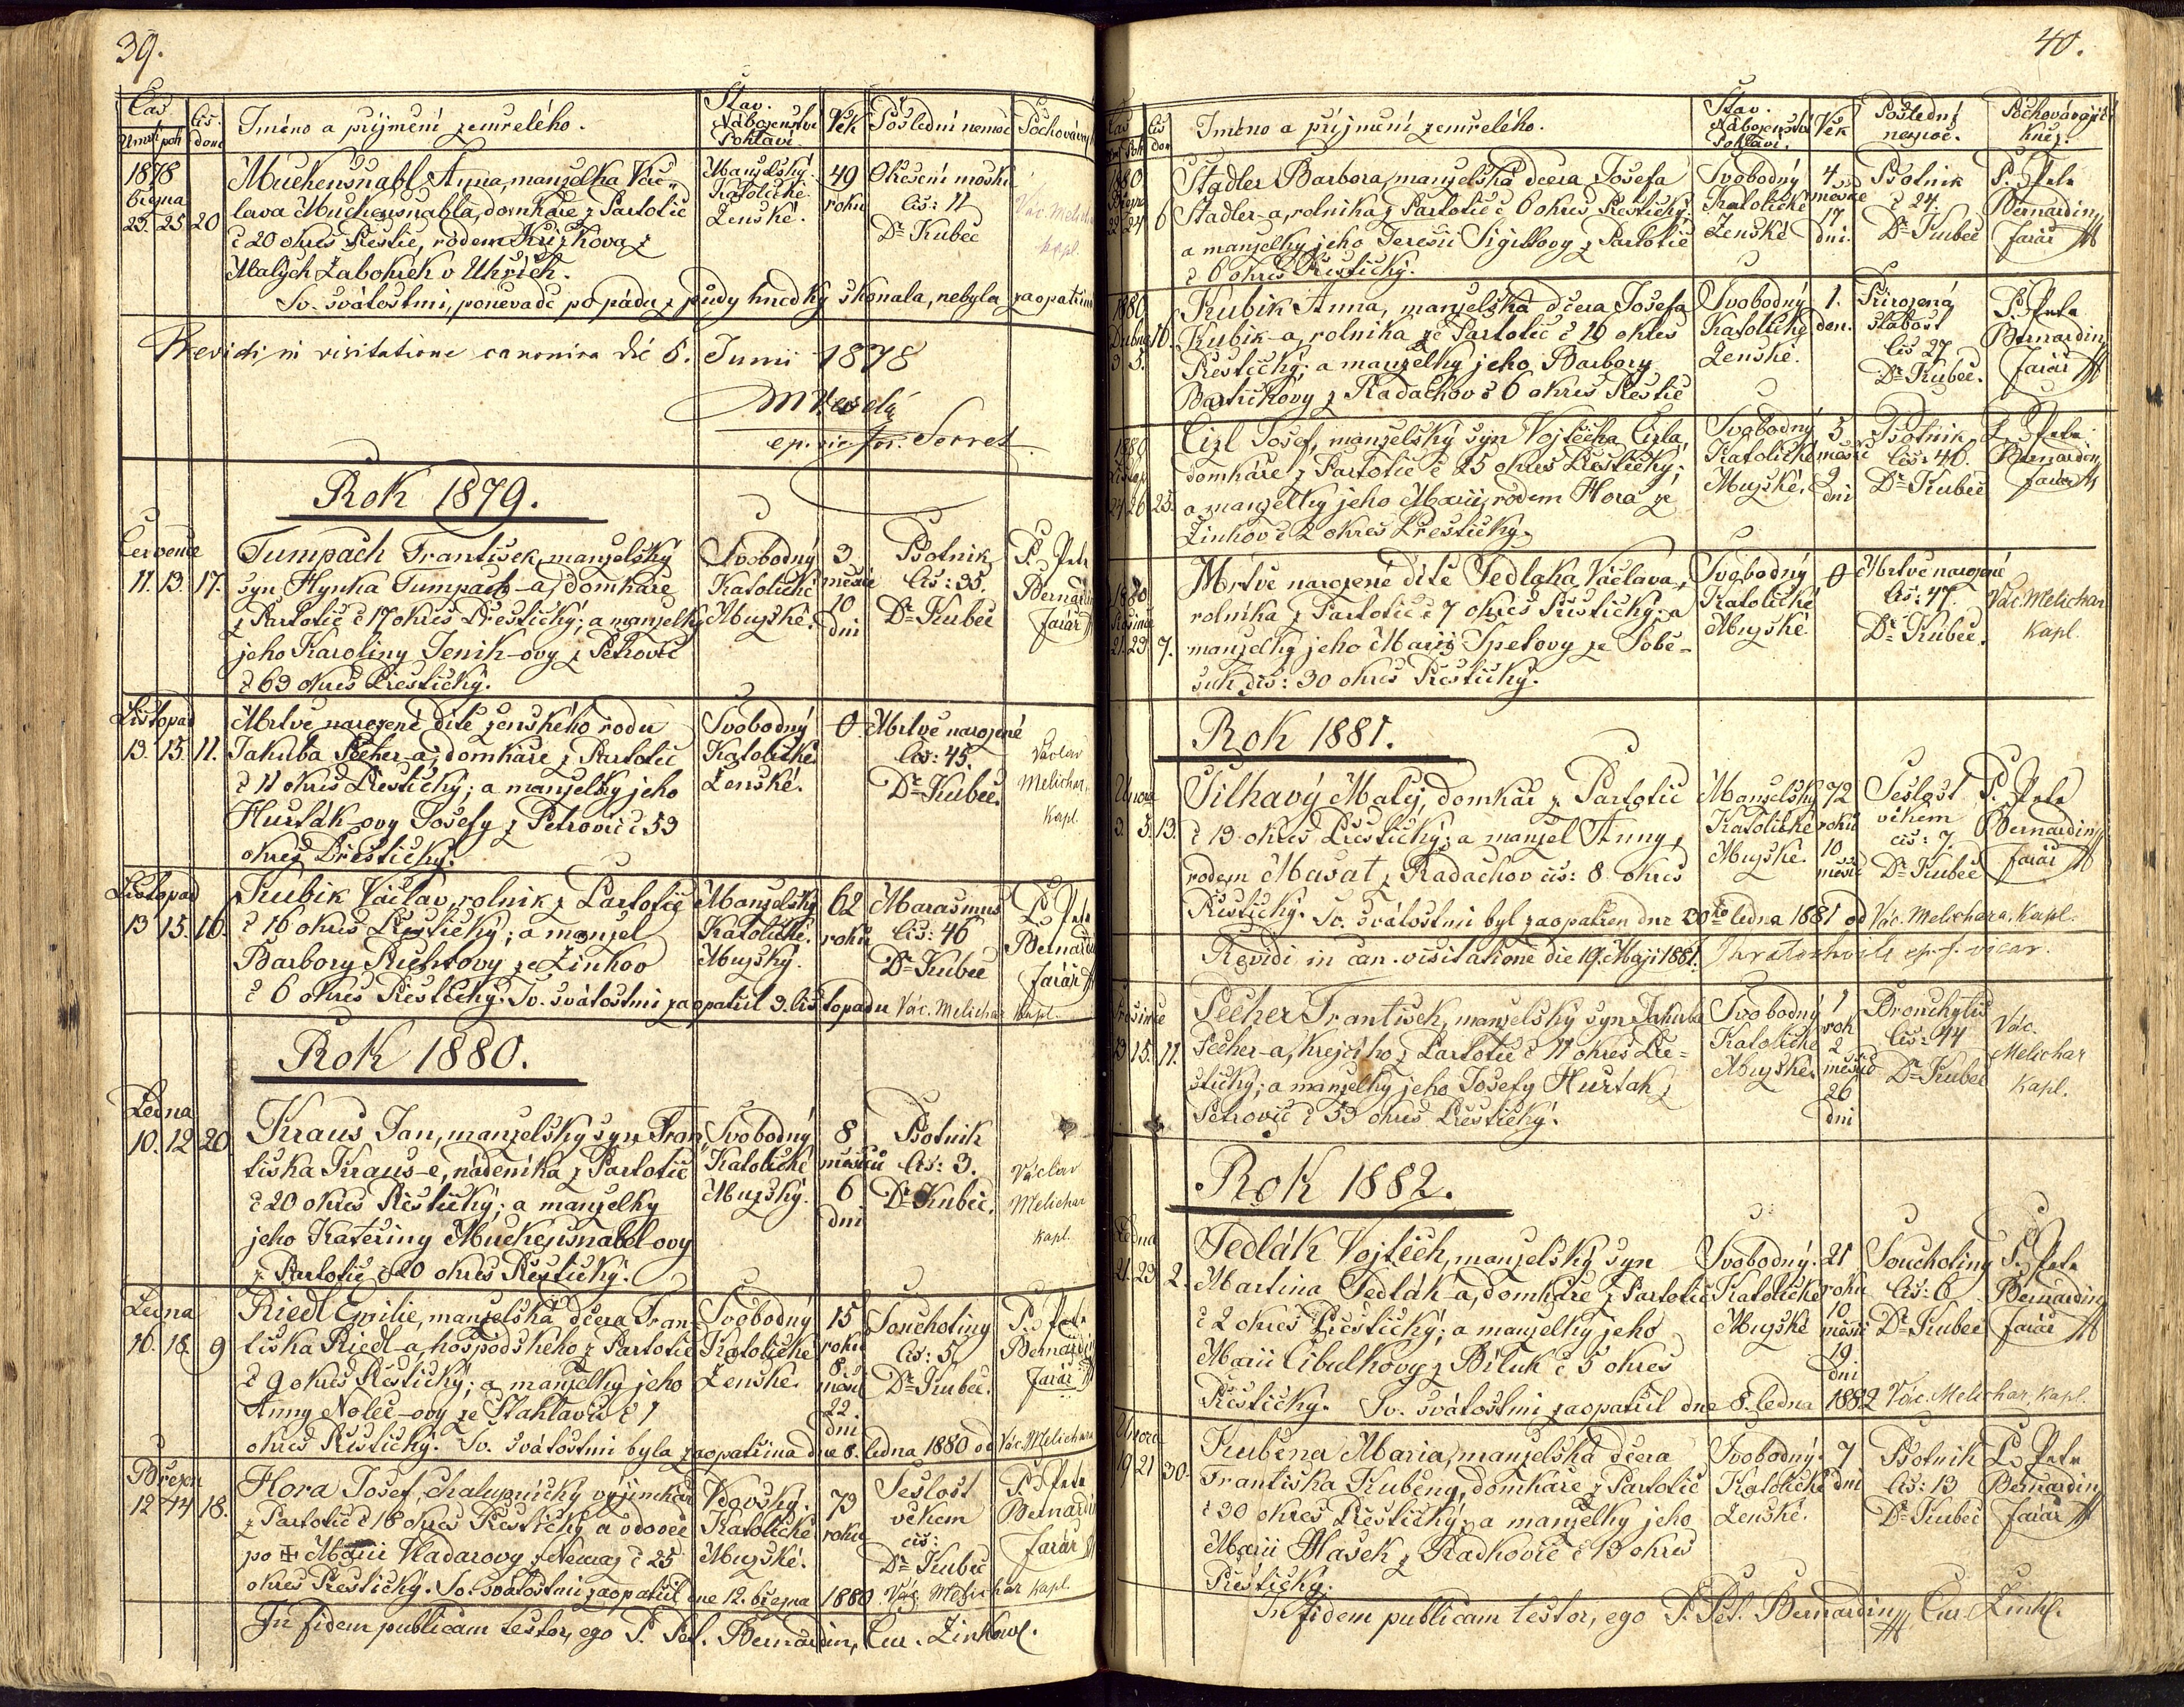 39.
Čas
Umrtí poh
Čís. domu
Jméno a příjmení zemřelého.
Stav.
Náboženství
Pohlaví
Věk
Poslední nemoc
Pochovávající
1878
března
23. 25. 20
Muckenšnabl Anna, manželka Vác-
lava Muckenšnabla, domkáře z Partotic
č 20 okres Přeštic, rodem Křížkova z
Malých Zabokrek v Uhřích.
Sv. svátostmi, poněvadč po pádu z půdy hnedky skonala, nebyla zaopatřena
Manželský
Katolické
Ženské.
49
roků
Otřesení mozku
čís: 11
Dr Kubeč
Vác. Melichar
kapl.
Revidi in visitatione canonica dié 5. Junii 1878
ep. vic. for. Secret
Rok 1879.
Července
11. 13. 17.
Tumpach František, manželský
syn Hynka Tumpach-a, domkáře
z Partotic č 17 okres Přeštický; a manželky
jeho Karoliny Jeník-ovy z Petrovic
č 63 okres Přeštický.
Svobodný
Katolické
Mužské.
3
měsíce
10
dni
Psotník
Čís: 35.
Dr Kubeč
P. Petr
Bernardin
farář
Listopad
13. 15. 11.
Mrtvě narozené dítě ženského rodu
Jakuba Pecher-a, domkáře z Partotic
č 11 okres Přeštický; a manželky jeho
Hurták-ovy Josefy z Petrovic č 53
okres Přeštický.
Svobodný
Katolické
Ženské.
0
Mrtvě narozené
čís: 45.
Dr Kubeč.
Václav
Melichar,
kapl.
Listopad
13 15. 16.
Kubík Václav, rolník z Partotic
č 16 okres Přeštický; a manžel
Barbory Richtovy ze Žinkov
č 6 okres Přeštický. Sv. svátostmi zaopatřil 3. listopadu Vác. Melichar kapl.
Manželský
Katolické.
Mužský.
62
roků
Marasmus
Čís: 46
Dr Kubeč
P. Petr
Bernardin
farář
Rok 1880.
Ledna
10. 12 20
Kraus Jan, manželský syn Fran-
tiška Kraus-e, nádeníka z Partotic
č 20 okres Přeštický; a manželky
jeho Kateřiny Muckenšnabel-ovy
z Partotic č 20 okres Přeštický.
Svobodný
Katolické
Mužský.
8
měsíců
6
dni
Psotník
čís: 3.
Dr Kubeč.
Václav
Melichar
kapl.
Ledna
16. 18. 9
Riedl Emilie, manželská dcera Fran-
tiška Riedl-a, hospodského z Partotic
č 9 okres Přeštický; a manželky jeho
Anny Noleč-ovy ze Štahlavic č 1
okres Přeštický. Sv. svátostmi byla zaopatřena dne 8. ledna 1880 od Vác. Melichara
Svobodný
Katolické
Ženské.
15
roků
8
měsíc
22.
dni
Souchotiny
čís: 5.
Dr Kubeč.
P. Petr
Bernardin
farář
Března
12 14 18.
Hora Josef, chalupnický výjimkář
z Partotic č 18 okres Přeštický a vdovec
po + Marii Vladarovy z Nemaj č 25
okres Přeštický. Sv. svátostmi zaopatřil dne 12. března 1880. Vác. Melichar kapl.
Vdovský.
Katolické
Mužské.
73
roků
Sešlost
věkem
čís:
Dr Kubeč
P. Petr
Bernardin
farář
In fidem publicam testor, ego P. Pet. Bernardin, Cur. Zinkov.
40.
Čas
Poh
Čís dom
Jméno a příjmení zemřelého.
Stav.
Náboženství
Pohlaví.
Věk
Poslední
nemoc.
Pochovávající
kněz.
1880
Března
22 24 6
Stadler Barbora, manželská dcera Josefa
Stadler-a, rolníka z Partotic č 6 okres Přeštický;
a manželky jeho Teresii Siglovy z Partotic
č 6 okres Přeštický.
Svobodný
Katolické
Ženské
4
měsíce
17
dni.
Psotník
č 24.
Dr Kubeč
P. Petr
Bernardin
farář
1880
Dubna 16.
3 5.
Kubík Anna, manželská dcera Josefa
Kubík-a, rolníka ze Partotic č 16 okres
Přeštický; a manželky jeho Barbory
Bartičkovy z Radachov č 6 okres Přeštic
Svobodný
Katolický
Ženské.
1.
den.
Přirozená
slabost
čís 27
Dr Kubeč.
P. Petr
Bernardin
farář
1880
Listop
24 26 25.
Cizl Josef, manželský syn Vojtěcha Cizla,
domkáře z Partotic č 25 okres Přeštický;
a manželky jeho Marii, rodem Hora ze
Žinkov č 2 okres Přeštický.
Svobodný
Katolické
Mužské.
5
měsíc
9
dni
Psotník
čís: 40.
Dr Kubeč
P. Petr
Bernardin
farář
1880
Prosince
21. 23 7.
Mrtvě narozené dítě Sedlaka Václava,
rolníka z Partotic č 7 okres Přeštický; a
manželky jeho Marii Špetovy ze Sobě-
suk čís: 30 okres Přeštický.
Svobodný
Katolické
Mužské
0
Mrtvě narozené
čís: 47.
Dr Kubeč.
Vác. Melichar
kapl.
Rok 1881.
Února
3. 5. 13.
Šilhavý Matěj, domkář z Partotic
č 13 okres Přeštický; a manžel Anny,
rodem Masat z Radachov čís: 8 okres
Přeštický. Sv. svátostmi byl zaopatřen dne 20ho ledna 1881 od Vác. Melichara, kapl.
Manželský
Katolické
Mužské.
72
roků
10
měsíc
Sešlost
věkem
čís: 7.
Dr Kubeč
P. Petr
Bernardin
farář
Revidi in can. visitatione die 19. Maji 1881. ep. f. vicar.
Prosince
13 15. 11.
Pecher František, manželský syn Jakuba
Pecher-a, krejčího z Partotic č 11 okres Pře-
štický; a manželky jeho Josefy Hurtak z
Petrovic č 53 okres Přeštický.
Svobodný
Katolické
Mužské.
1
rok
2
měsíce
26
dni
Bronchytis
čís: 44
Dr Kubeč
Vác.
Melichar
kapl.
Rok 1882.
Ledna
21. 23 2.
Sedlák Vojtěch, manželský syn
Martina Sedlák-a, domkáře z Partotic
č 2 okres Přeštický; a manželky jeho
Marii Cibulkovy z Biluk č 5 okres
Přeštický. Sv. svátostmi zaopatřil dne 8. ledna 1882 Vác. Melichar, kapl.
Svobodný.
Katolické
Mužské
21
roků
10
měsíc
19
dni
Souchotiny
čís: 6
Dr Kubeč
P. Petr
Bernardin
farář
Února
19 21 30.
Kuběna Maria, manželská dcera
Františka Kuběny, domkáře z Partotic
č 30 okres Přeštický; a manželky jeho
Marii Hašek z Radkovic č 13 okres
Přeštický.
Svobodný.
Katolické
Ženské.
7
dni
Psotník
čís: 13
Dr Kubeč
P. Petr
Bernardin
farář
In fidem publicam testor, ego P. Pet. Bernardin Cur. Zink.